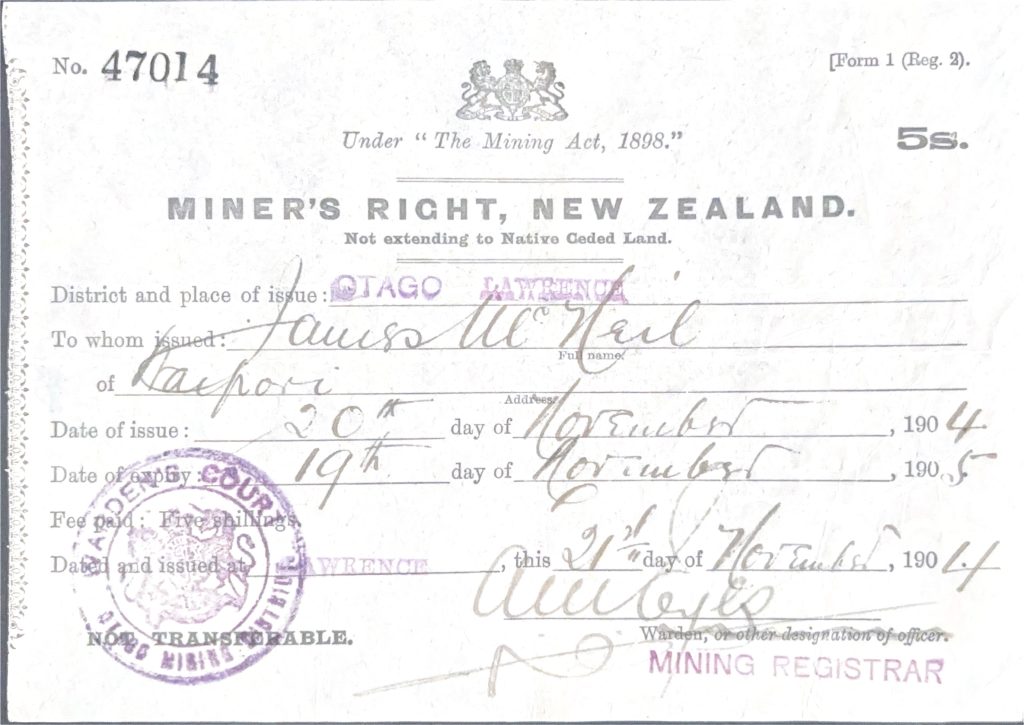 No. 47014
[Form 1 (Reg. 2).
Under "The Mining Act, 1898."
5s.
MINER'S RIGHT, NEW ZEALAND.
Not extending to Native Ceded Land.
District and place of issue: OTAGO LAWRENCE
To whom issued: James McNeil
Full name.
of Waipori
Address.
Date of issue: 20th day of November, 1904.
Date of expiry: 19th day of November, 1905
Fee paid: Five shillings.
Dated and issued at LAWRENCE, this 21st day of November, 1904
WARDEN'S COURT
OTAGO MINING DISTRICT
NOT TRANSFERABLE.
Warden, or other designation of officer.
MINING REGISTRAR